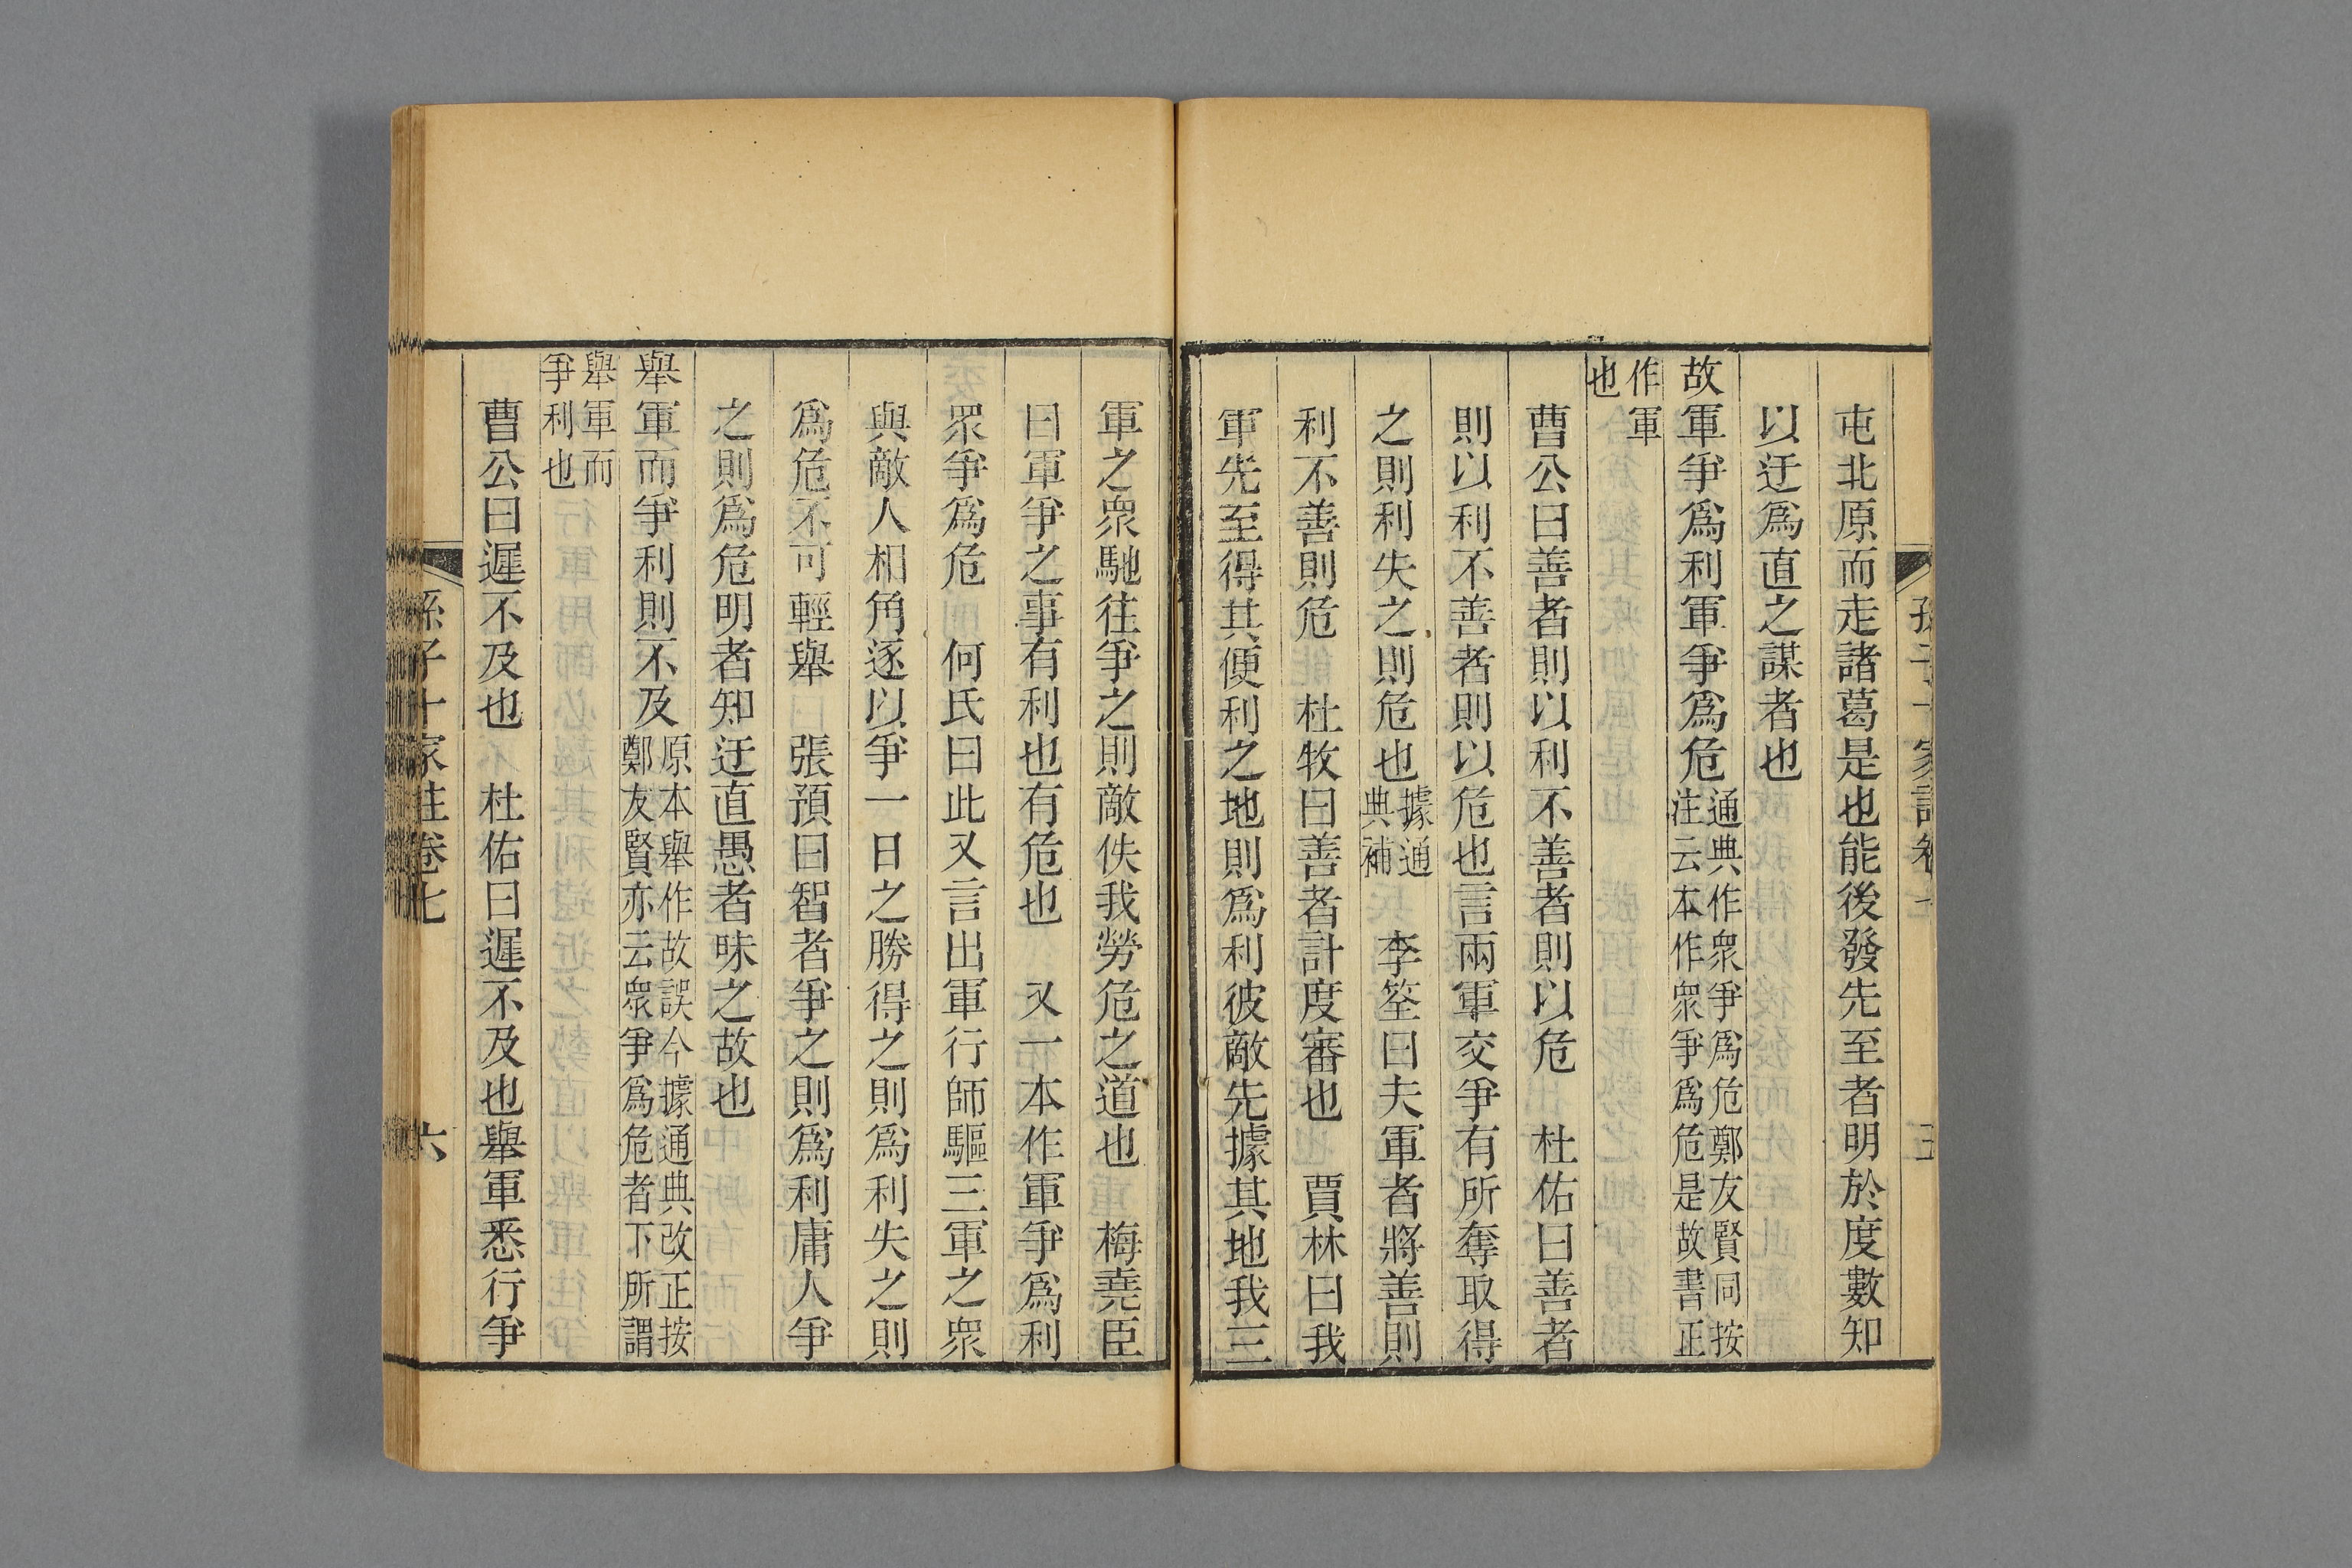 屯北原而走諸葛是也能後發先至者明於度數知
以迂爲直之謀者也
故軍爭爲利軍爭爲危通典作衆爭爲危鄭友賢同按
注云本作衆爭爲危是故書正
作軍
也
曹公曰善者則以利不善者則以危　杜佑曰善者
則以利不善者則以危也言兩軍交爭有所奪取得
之則利失之則危也據通
典補　李筌曰夫軍者將善則
利不善則危　杜牧曰善者計度審也　賈林曰我
軍先至得其便利之地則爲利彼敵先據其地我三
軍之衆馳往爭之則敵佚我勞危之道也　梅堯臣
曰軍爭之事有利也有危也　又一本作軍爭爲利
眾爭爲危　何氏曰此又言出軍行師驅三軍之衆
與敵人相角逐以爭一日之勝得之則爲利失之則
爲危不可輕舉　張預曰智者爭之則爲利庸人爭
之則爲危明者知迂直愚者昧之故也
舉軍而爭利則不及原本舉作故誤今據通典改正按
鄭友賢亦云衆爭爲危者下所謂
舉軍而
爭利也
曹公曰遲不及也　杜佑曰遲不及也舉軍悉行爭
孫子十家註卷七
六